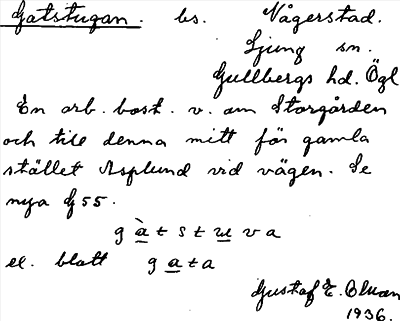 Gatstugan. bs. Vågerstad.
Ljung sn.
Gullbergs hd. Ögl
En arb. bost. v. om Storgården
och till denna mitt för gamla
stället Asplund vid vägen. Se
nya G 55.
g à t s t u v a
el. blott g a t a
Gustaf E.
1936.